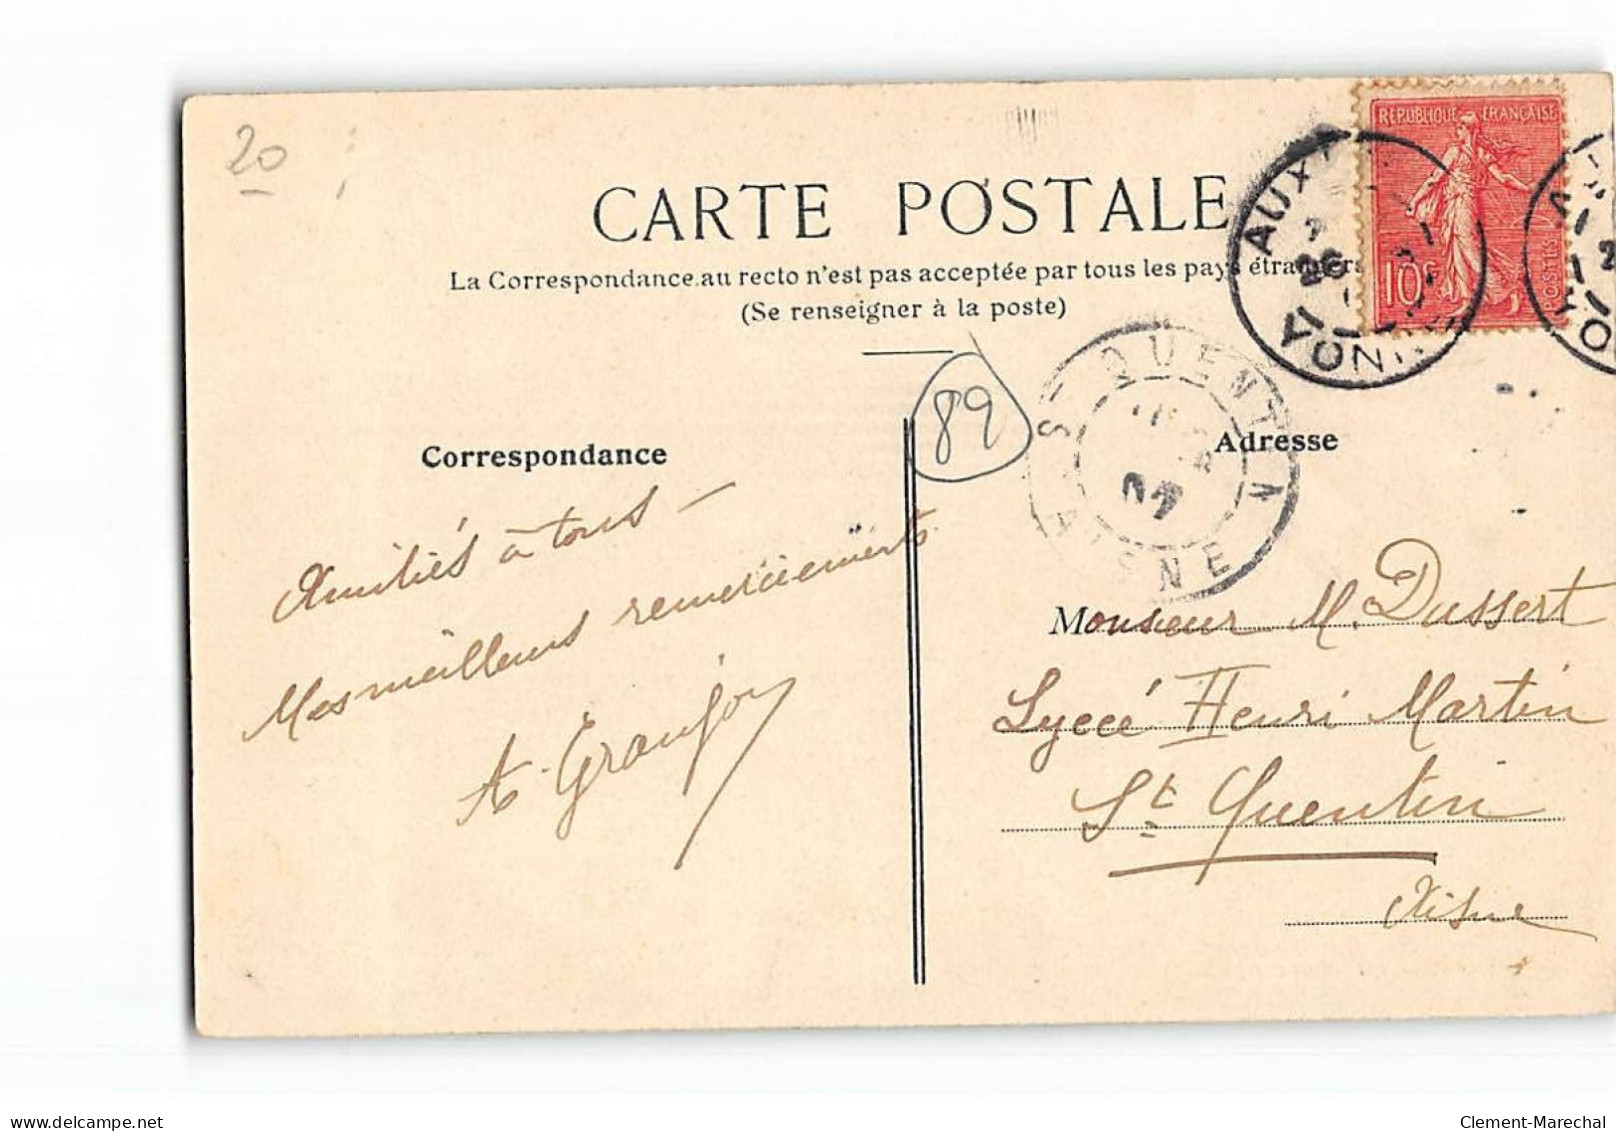 20
REPUBLIQUE FRANÇAISE
10c
POSTES
CARTE POSTALE
La Correspondance au recto n'est pas acceptée par tous les pays étrangers
(Se renseigner à la poste)
AUX
YONN
ST QUENTIN
07
AISNE
89
Correspondance
Adresse
Amitiés à tous —
Mes meilleurs remerciements
A. Granjon
Monsieur M. Dussert
Lycée Henri Martin
St Quentin
Aisne
delcampe.net
Clement-Marechal